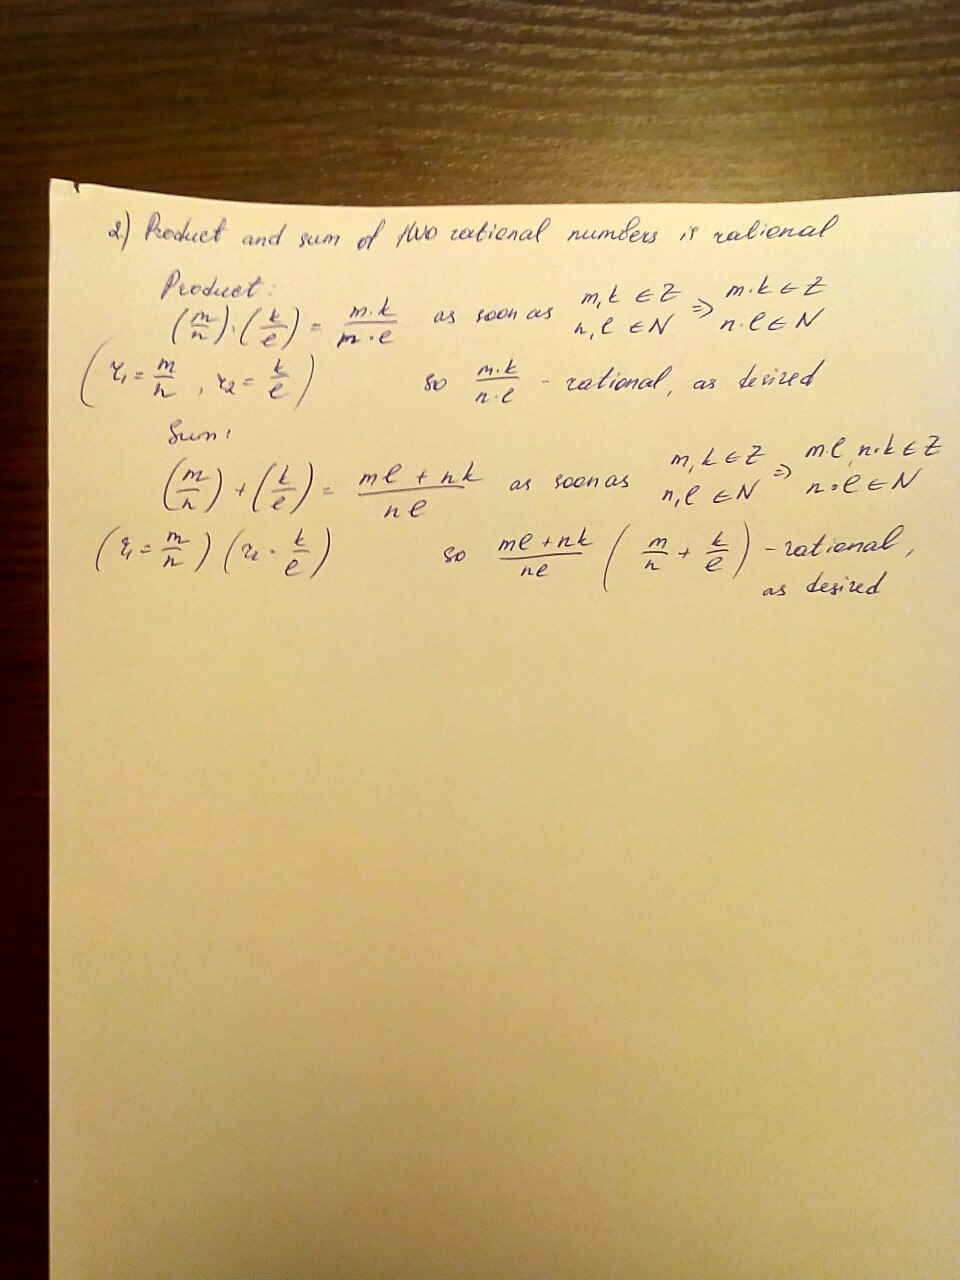 2) Product and sum of two rational numbers is rational
Product:
(m/n)·(k/l) = m·k/m·l as soon as m, k ∈ Z n, l ∈ N => m·k ∈ Z n·l ∈ N
(r₁ = m/n , r₂ = k/l) so m·k/n·l - rational, as desired
Sum:
(m/n) + (k/l) = ml + nk/nl as soon as m, k ∈ Z n, l ∈ N => m·l, n·k ∈ Z n·l ∈ N
(r₁ = m/n) (r₂ = k/l) so ml + nk/nl (m/n + k/l) - rational,
as desired